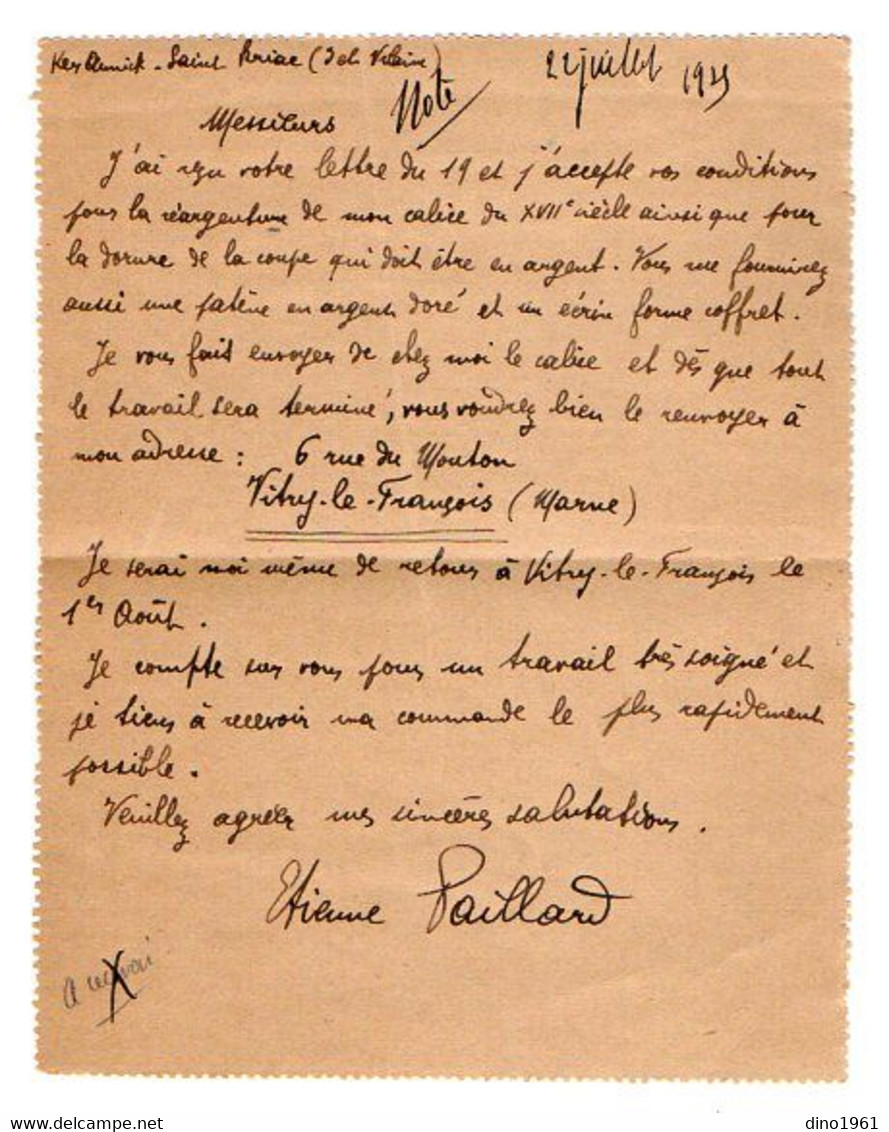 Ker Annick - Saint Briac (I et Vilaine) 22 juillet
Messieurs Noté
J'ai reçu votre lettre du 19 et j'accepte vos conditions
pour la réargenture de mon calice du XVIIe siècle ainsi que pour
la dorure de la coupe qui doit être en argent. Vous me fournirez
aussi une patène en argent doré et un écrin forme coffret.
Je vous fais envoyer de chez moi le calice et dès que tout
le travail sera terminé, vous voudrez bien le renvoyer à
mon adresse : 6 rue du Mouton
Vitry-le-François (Marne)
Je serai moi même de retour à Vitry-le-François le
1er Août.
Je compte sur vous pour un travail très soigné et
je tiens à recevoir ma commande le plus rapidement
possible.
Veuillez agréer mes sincères salutations.
Etienne Paillard
dino1961